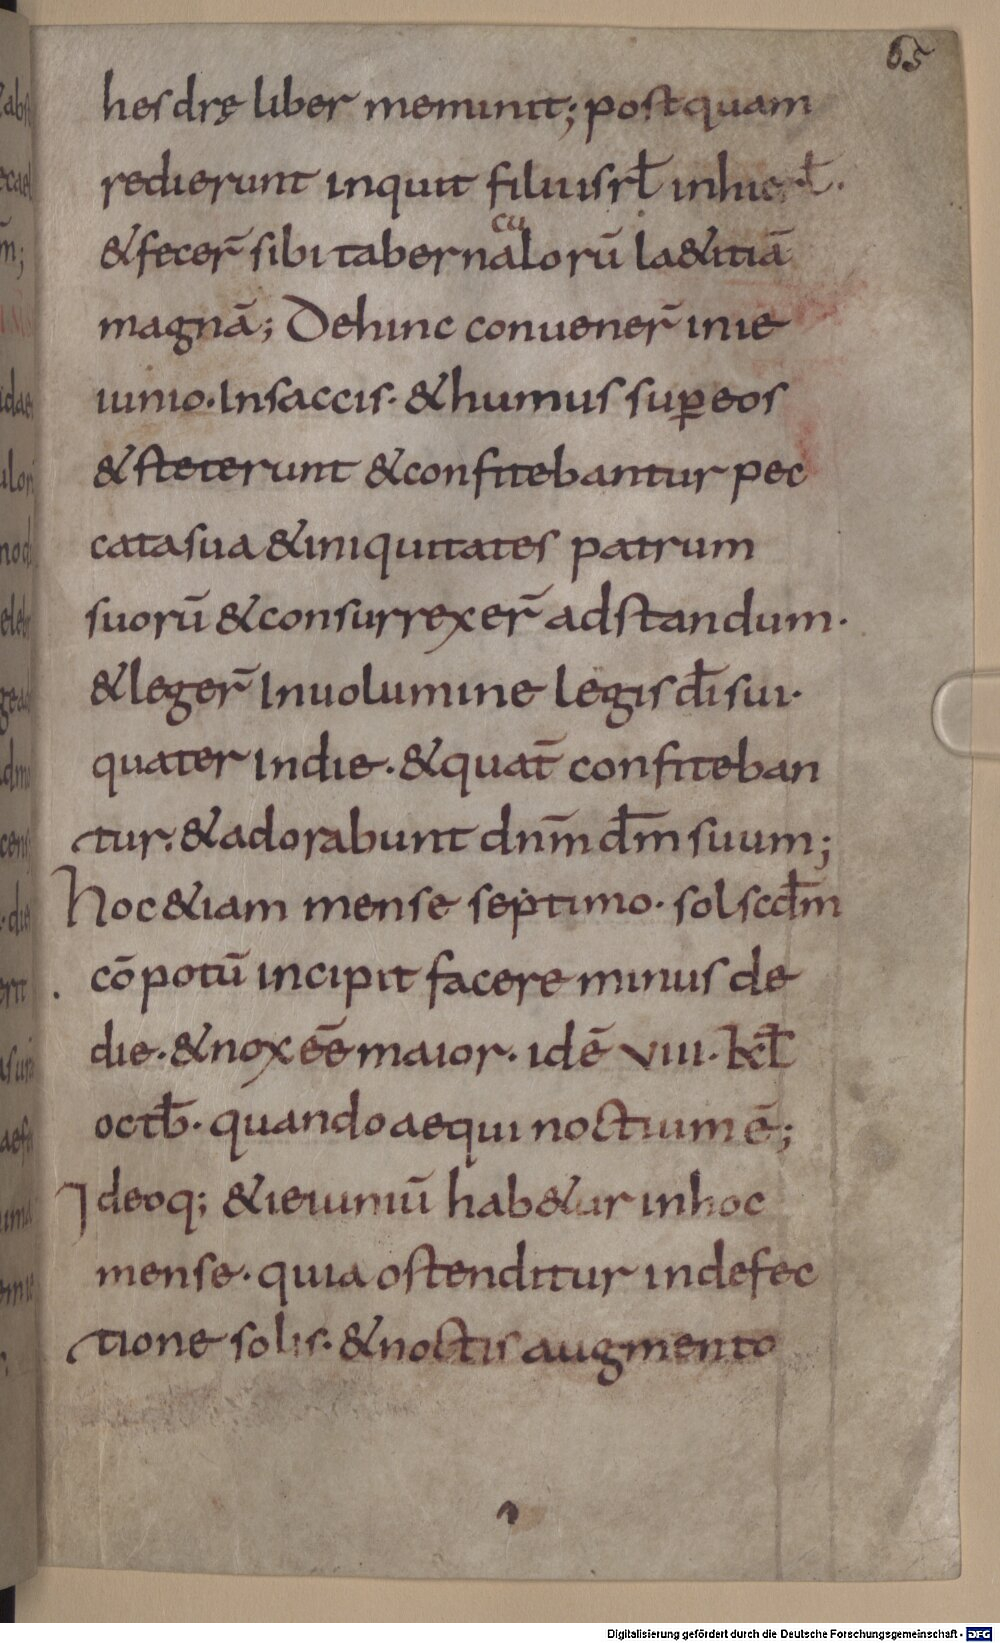 65
hesdrę liber meminit; postquam
redierunt inquit filii isrł inhierł.
&fecer̄ sibi tabernaculorū la&itiā
magnā; Dehinc conuener̄ inie
iunio. Insaccis. & humus sup̱ eos
& steterunt & confitebantur pec
cata sua & iniquitates patrum
suorū & consurrexer̄ adstandum.
& leger̄ Inuolumine legis dī sui.
quater indie. & quat̄ confiteban
tur. & adorabunt dnm̄ dm̄ suum;
hoc &iam mense septimo. sol scdm̄
cōpotū incipit facere minus de
die. & nox eē maior. idē VIII. kł
octƀ. quando aequinoctium ē;
Ideoq; & ieiuniū hab&ur inhoc
mense. quia ostenditur indefec
tione solis. & noctis augmento
Digitalisierung gefördert durch die Deutsche Forschungsgemeinschaft - DFG